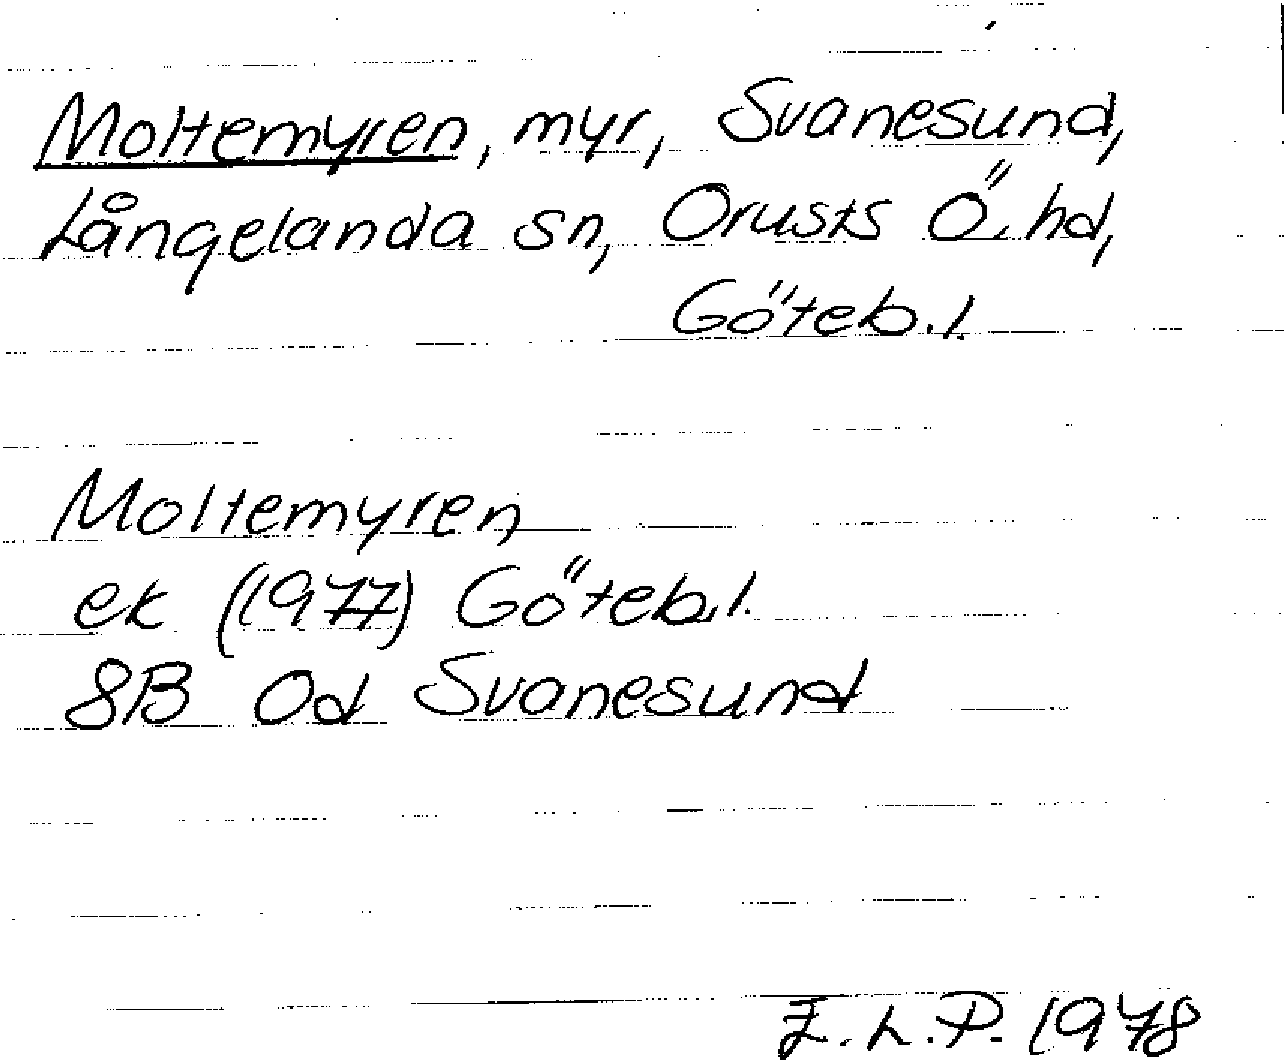 Moltemyren, myr, Svanesund,
Långelanda sn, Orusts Ö. hd,
Göteb. l.
Moltemyren
ek (1977) Göteb. l.
8B 0d Svanesund
E. L. P. 1978